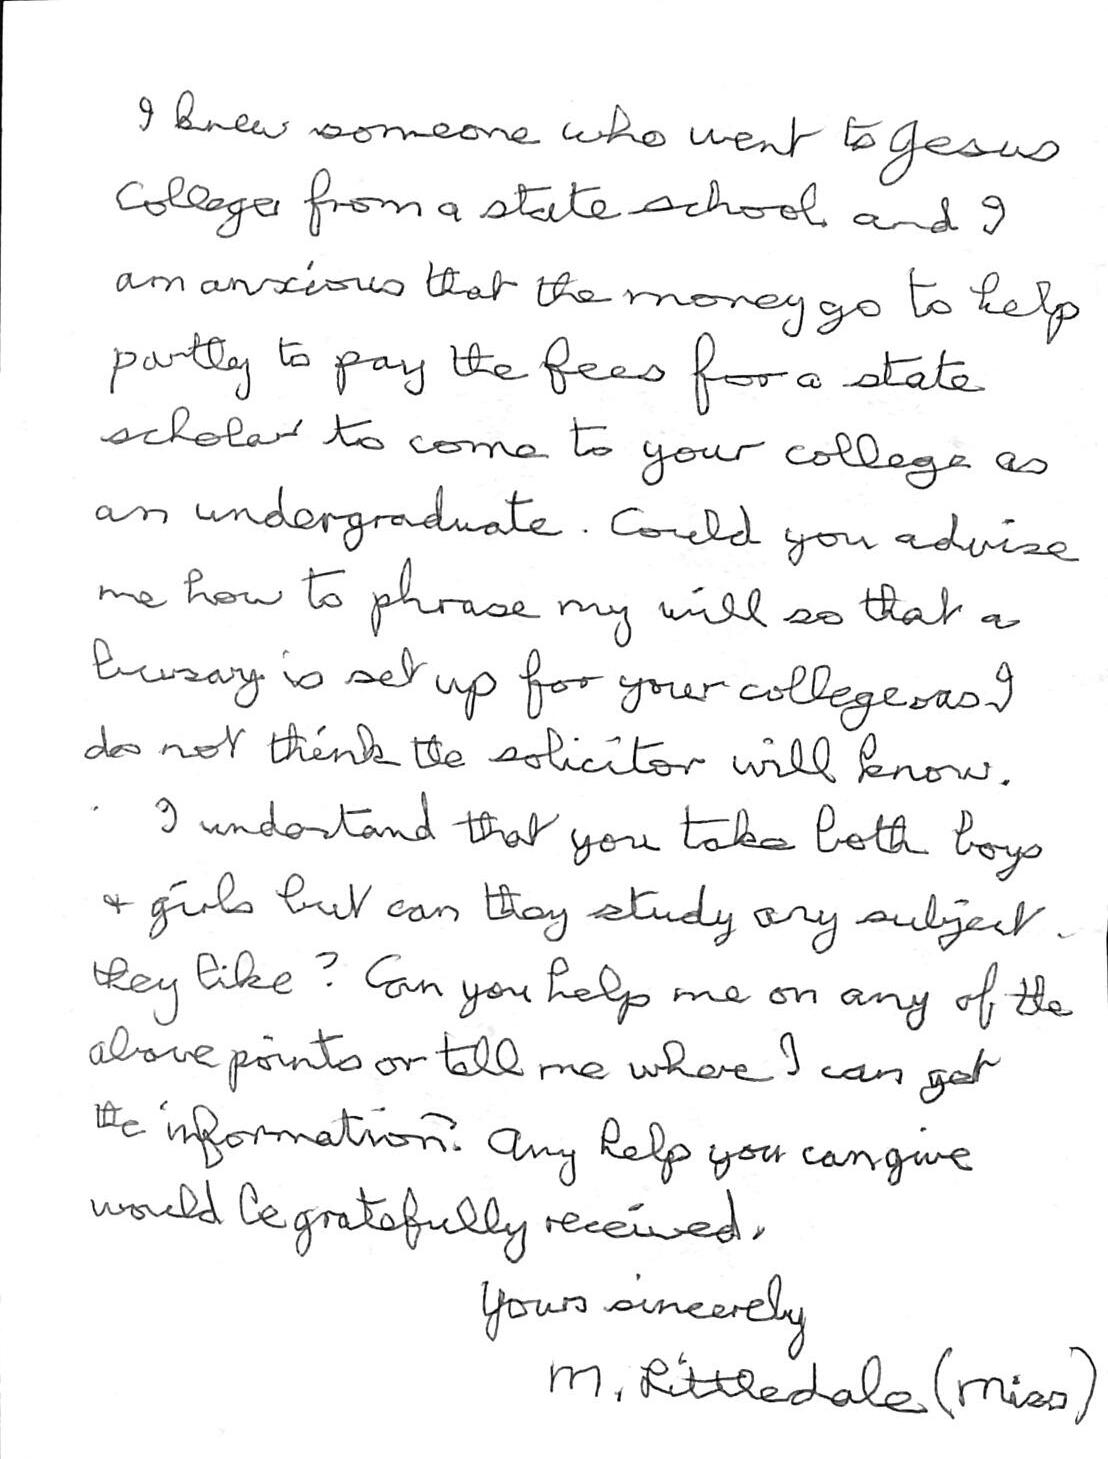 I knew someone who went to Jesus
College from a state school and I
am anxious that the money go to help
partly to pay the fees for a state
scholar to come to your college as
an undergraduate. Could you advise
me how to phrase my will so that a
bursary is set up for your college as I
do not think the solicitor will know.
I understand that you take both boys
& girls but can they study any subject
they like? Can you help me on any of the
above points or tell me where I can get
the information? Any help you can give
would be gratefully received.
Yours sincerely
M. Littledale (Miss)